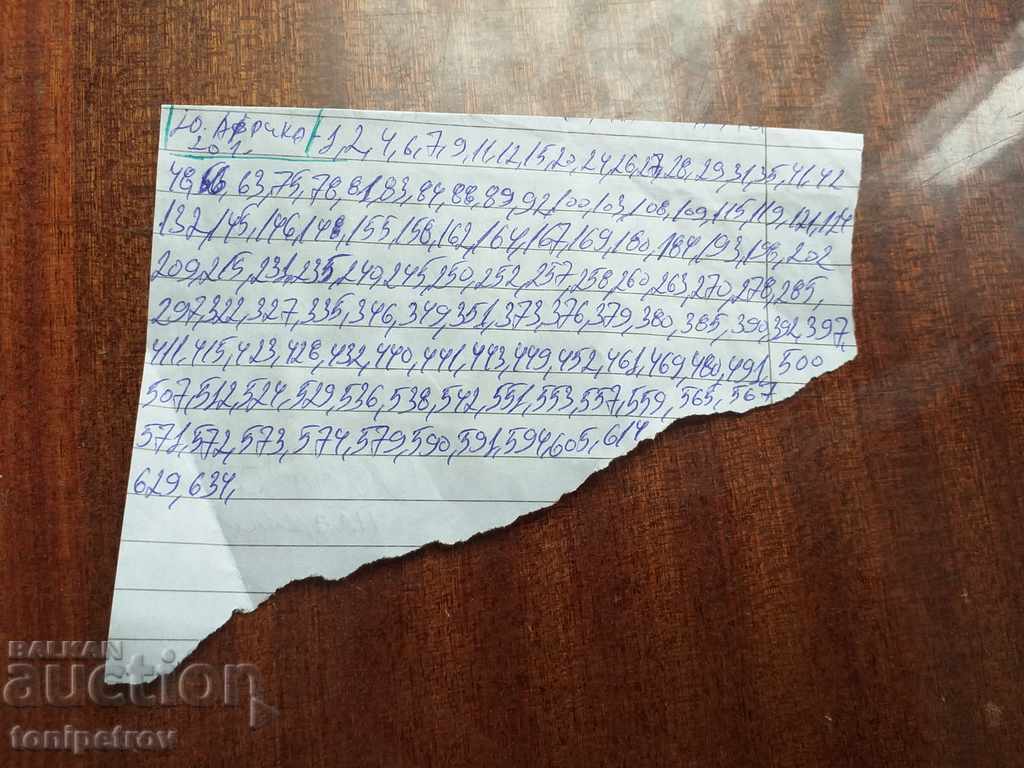 Ю. Африка 1,2,4,6,7,9,11,12,15,20,24,26,27,28,29,31,35,41,42
2012
48, 63,75,78,81,83,84,88,89,92,100,103,108,109,115,119,121,124
132,145,146,148,155,158,162,164,167,169,180,184,193,198,202
209,215,231,235,240,245,250,252,257,258,260,263,270,278,285,
297,322,327,335,346,349,351,373,376,379,380,385,390,392,397,
411,415,423,428,432,440,441,443,449,452,461,469,480,491,500
507,512,524,529,536,538,542,551,553,557,559,565,567
571,572,573,574,579,590,591,594,605,614
629,634,
BALKAN
auction
tonipetrov